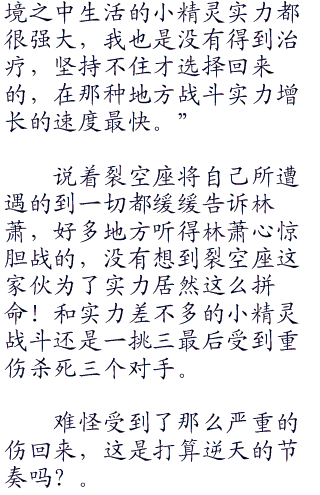 境之中生活的小精灵实力都
很强大，我也是没有得到治
疗，坚持不住才选择回来
的，在那种地方战斗实力增
长的速度最快。”
说着裂空座将自己所遭
遇的到一切都缓缓告诉林
萧，好多地方听得林萧心惊
胆战的，没有想到裂空座这
家伙为了实力居然这么拼
命！和实力差不多的小精灵
战斗还是一挑三最后受到重
伤杀死三个对手。
难怪受到了那么严重的
伤回来，这是打算逆天的节
奏吗？。